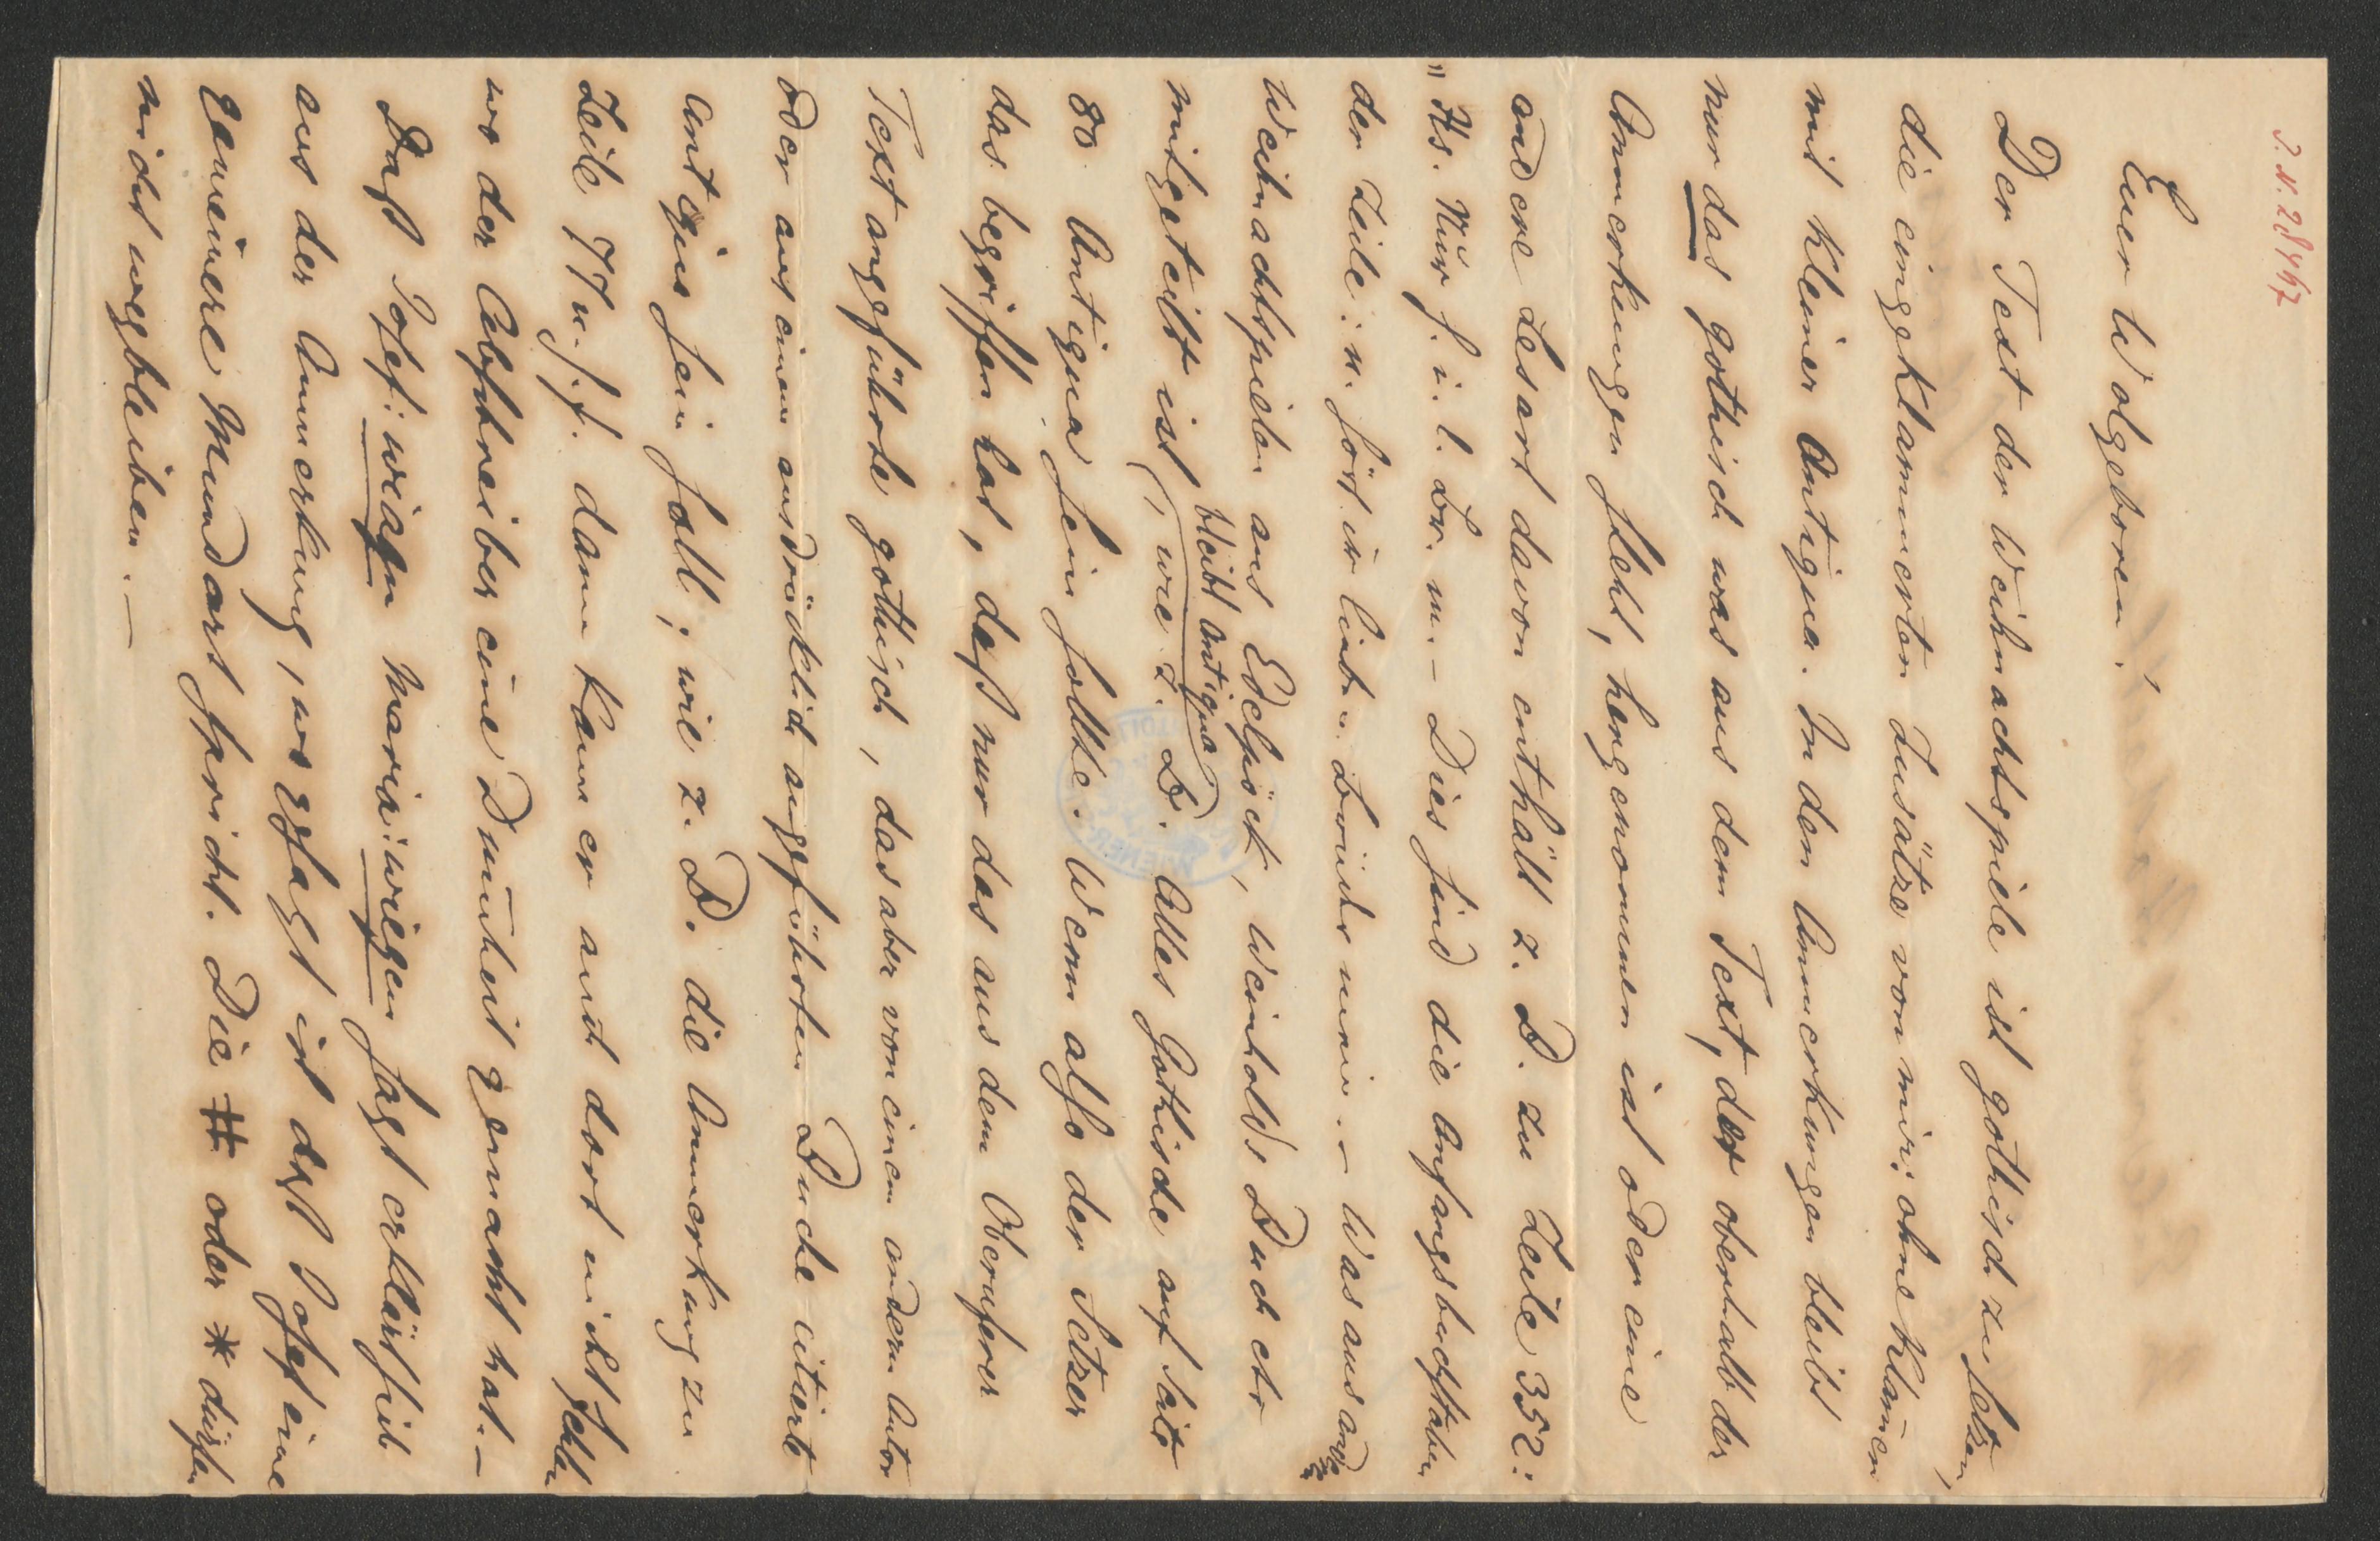 I. N. 28467
Euer Wolgeboren!
Der Text der Weihnachtspiele ist gothisch zu setzen,
die eingeklammerten Zusätze von mir: ohne Klam̄ern
mit kleiner Antiqua. In den Anmerkungen bleibt
nur das gothisch was aus dem Text, der oberhalb der
Anmerkungen steht, hergenommen ist oder eine
andere Lesart davon enthält z. B. zu Zeile 352:
„Hs. Nur h. i. l. Br. m. – Dies sind die Anfangsbuchstaben
der Zeile: n. hört ir lieben Brüder mein. – Was aus andern
Weihnachtspielen aus Edelpöck, Weinholds Buch etc
mitgeteilt ist, bleibt antiqua (wie z. B. Alles Gothische auf Seite
80 Antiqua sein sollte. Wenn also der Setzer
das begriffen hat, daß nur das aus dem Oberuferer
Text angeführte gothisch, das aber von einem andern Autor
oder aus einem ausdrücklich angeführten Buche citierte
antiqua sein soll; wie z. B. die Anmerkung zu
Zeile 77 u. f. f. dann kann er auch dort nicht fehlen
wo der Abschreiber eine Dum̄heit gemacht hat. –
Daß Josef: wiagn Maria: wiegen sagt erklärt sich
aus der Anmerkung, wo gesagt ist daß Josef eine
gemeinere Mundart spricht. Die # oder * dürfen
nicht wegbleiben. –